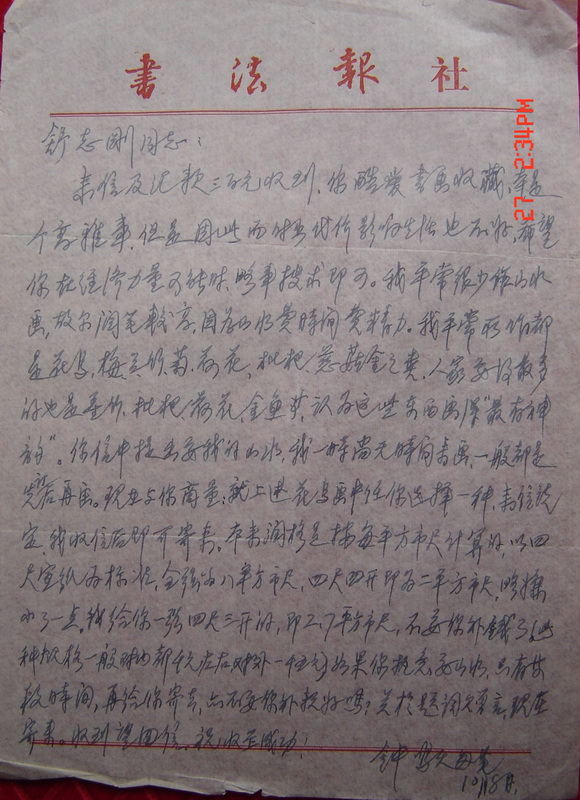 書法報社
27 2:34PM
舒志刚同志：
来信及汇款三百元收到，你酷爱书画收藏，本是
个高雅事，但是因此而付出代价影响生活也不好，希望
你在经济力量可能时，略事搜求即可。我平常很少作山水
画，故尔润笔较高，因为山水费时间费精力。我平常所作都
是花鸟，梅兰竹菊、荷花、枇杷、葱菇金之类，人家要得最多
的也是墨竹、枇杷、荷花、金鱼等，认为这些东西画得"最有神
韵"。你信中提出要我的山水，我一时尚无时间書画，一般都是
再画。现在与你商量：就上述花鸟画中任你选择一种，来信说
定，我收信后即可寄来。本来润格是按每平方市尺计算的，以四
尺宣纸为标准，全张为八平方市尺，四尺四开即为二平方市尺，略嫌
小了一点，我给你一张四尺三开的，即2.7平方市尺，不要你补钱了（此
种规格一般都千元左右）如果你执意要山水，只有
较时间，再给你寄去，也不要你补款好吗？关于题词，现在
寄来。收到望回信，祝收藏成功！
钟
10月18日